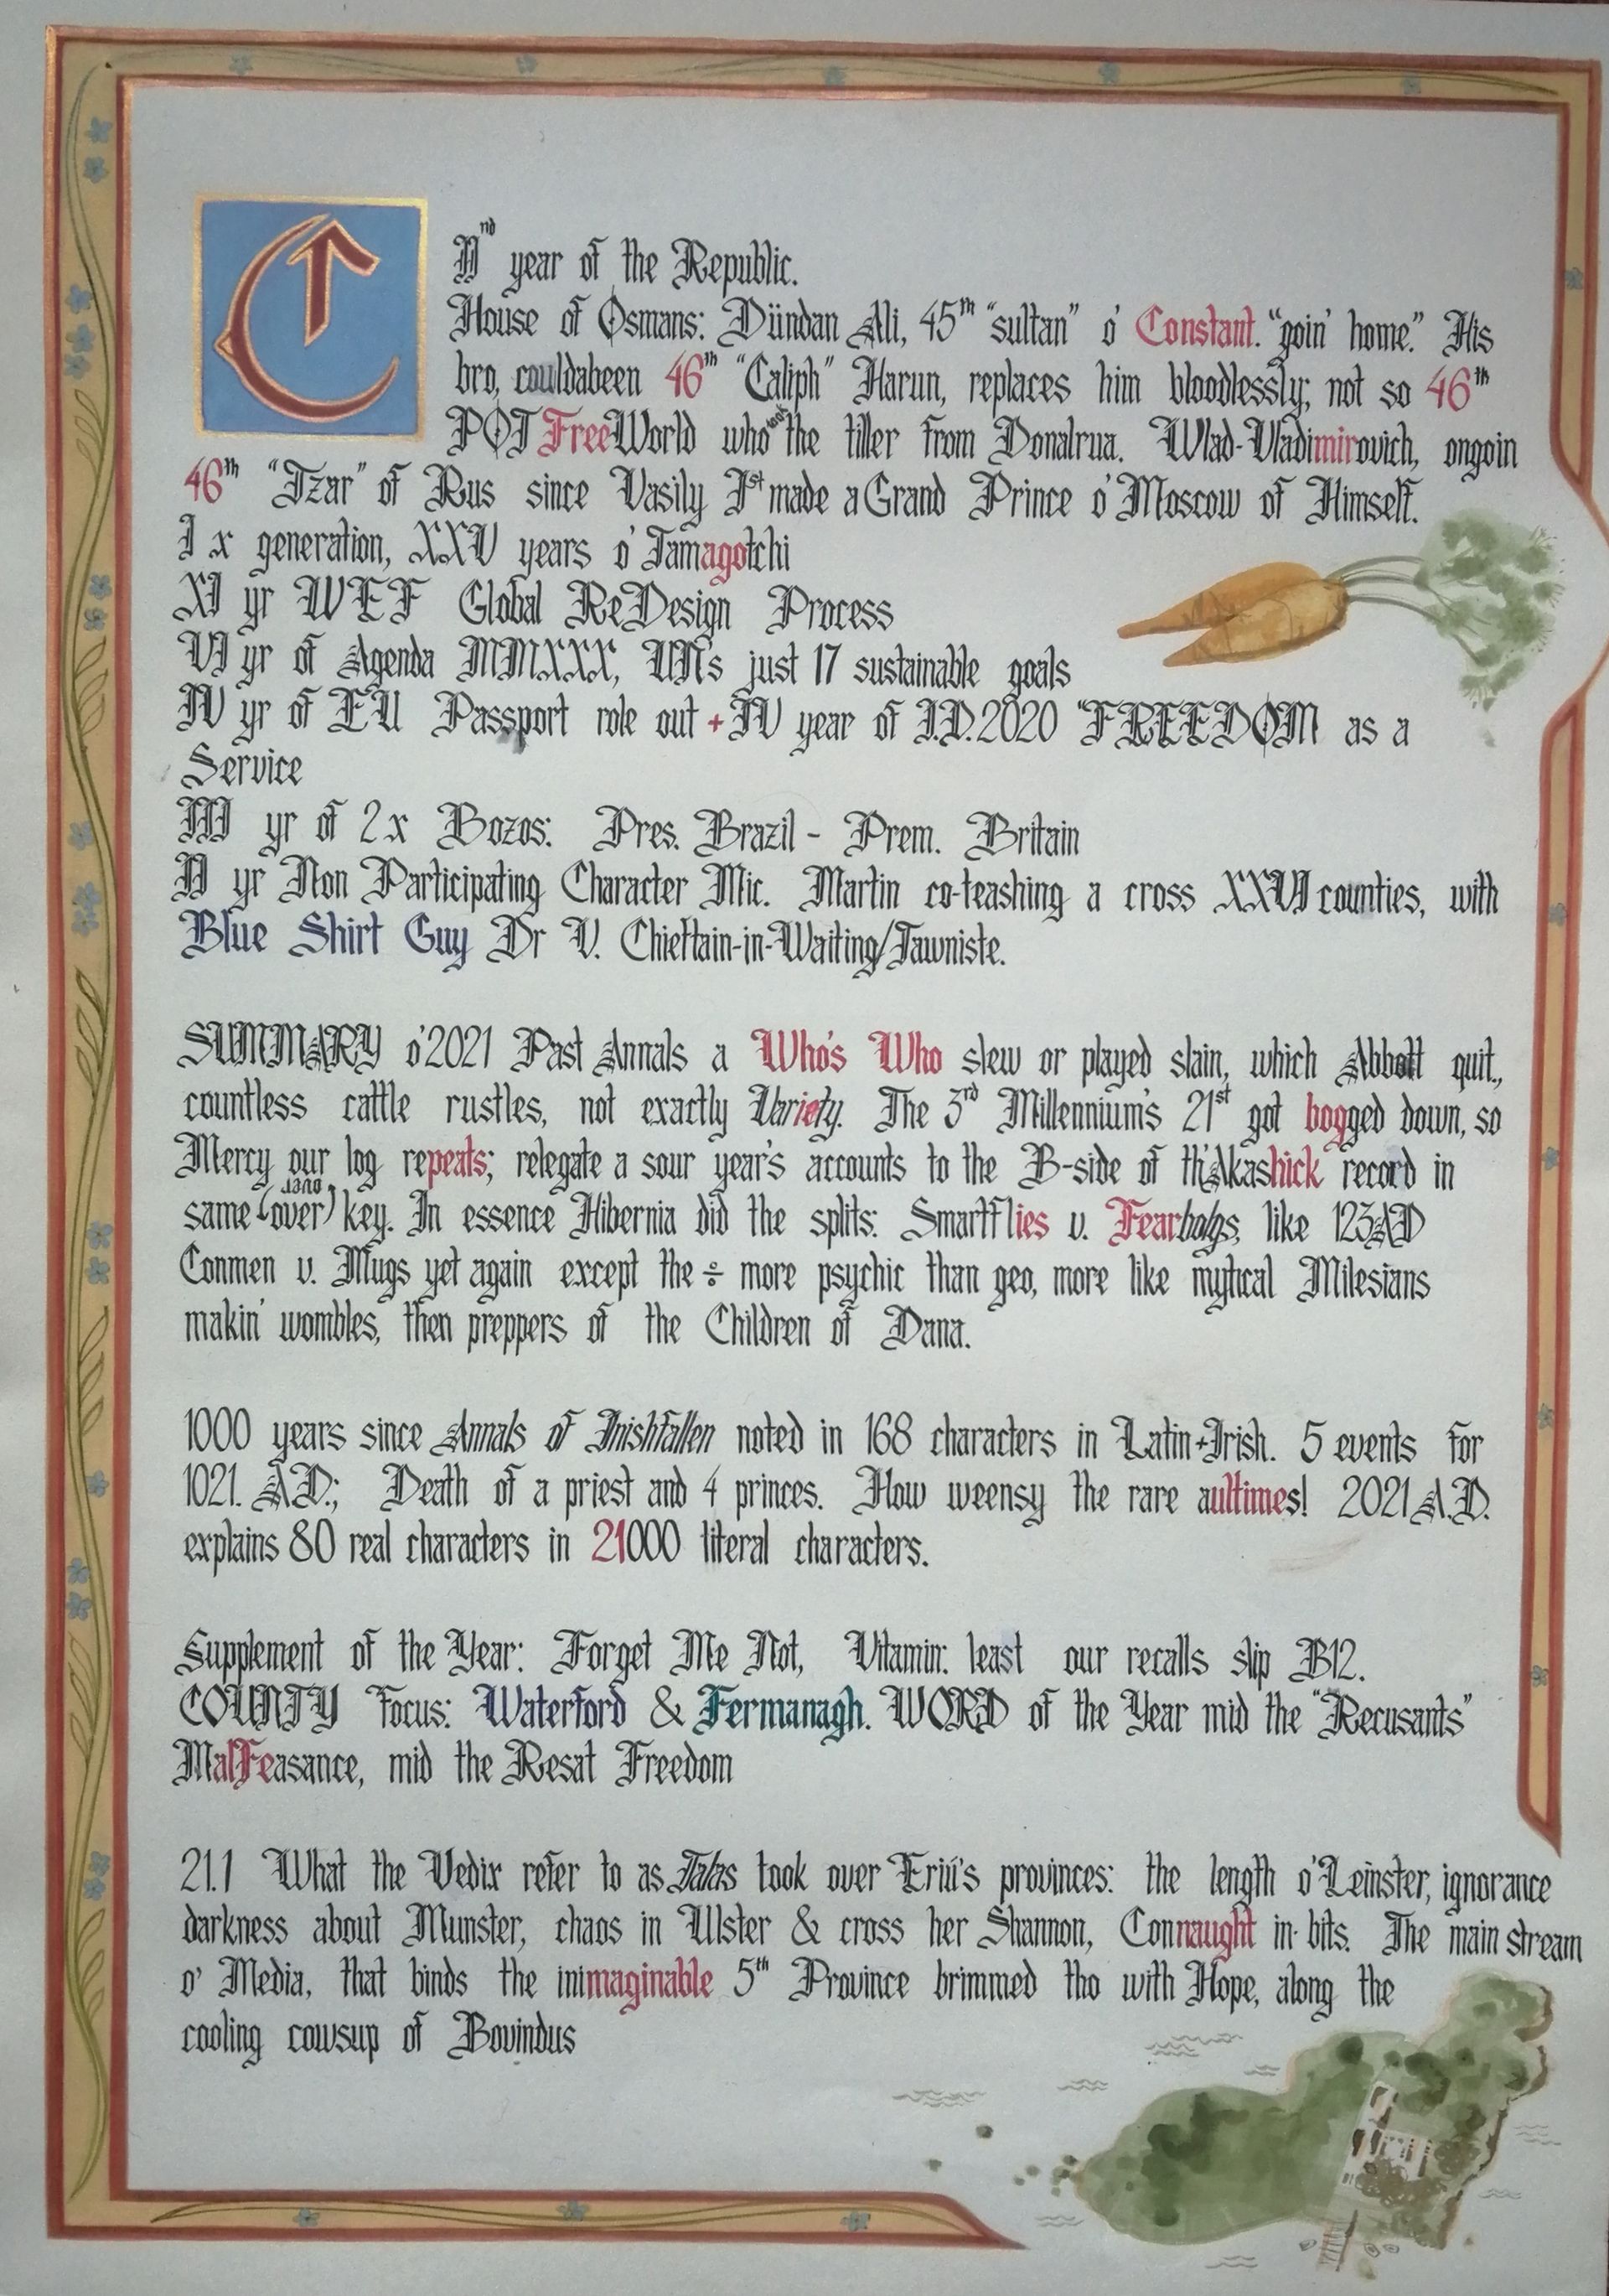 C II nd year of the Republic.
House of Osmans: Dündan Ali, 45th "sultan" o' Constant. "goin' home." His
bro, couldabeen 46th "Caliph" Harun, replaces him bloodlessly; not so 46th
POT FreeWorld who took the tiller from Donalrua. Wlad-Vladimirovich, ongoin
46th "Tzar" of Rus since Vasily Ist made a Grand Prince o' Moscow of Himself.
I x generation, XXV years o' Tamagotchi
XI yr WEF Global ReDesign Process
VI yr of Agenda MMXXX, UN's just 17 sustainable goals
IV yr of EU Passport role out + IV year of I.D.2020 "FREEDOM as a
Service
III yr of 2x Bozos: Pres. Brazil - Prem. Britain
II yr Non Participating Character Mic. Martin co-teashing a cross XXVI counties, with
Blue Shirt Guy Dr V. Chieftain-in-Waiting/Tawniste.
SUMMARY o'2021 Past Annals a Who's Who slew or played slain, which Abbott quit,
countless cattle rustles, not exactly Variety. The 3rd Millennium's 21st got bogged down, so
Mercy our log repeats; relegate a sour year's accounts to the B-side of th'Akashick record in
same (over/over) key. In essence Hibernia did the splits: Smartflies v. Fearbolgs, like 123AD
Conmen v. Mugs yet again except the ÷ more psychic than geo, more like mytical Milesians
makin' wombles, then preppers of the Children of Dana.
1000 years since Annals of Inishfallen noted in 168 characters in Latin+Irish. 5 events for
1021. AD.; Death of a priest and 4 princes. How weensy the rare aultimes! 2021 A.D.
explains 80 real characters in 21000 literal characters.
Supplement of the Year: Forget Me Not, Vitamin: least our recalls slip B12.
COUNTY Focus: Waterford & Fermanagh. WORD of the Year mid the "Recusants"
MalFeasance, mid the Resat Freedom
21.1 What the Vedix refer to as Talas took over Eriú's provinces: the length o'Leinster, ignorance
darkness about Munster, chaos in Ulster & cross her Shannon, Connaught in bits. The main stream
o' Media, that binds the inimaginable 5th Province brimmed tho with Hope, along the
cooling cowsup of Bovindus